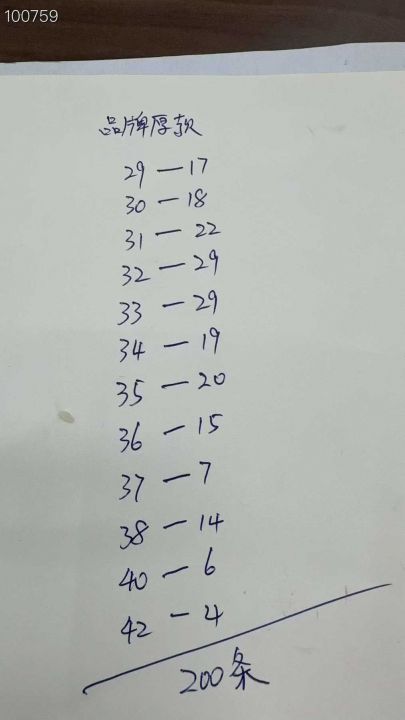 100759
品牌厚款
29 — 17
30 — 18
31 — 22
32 — 29
33 — 29
34 — 19
35 — 20
36 — 15
37 — 7
38 — 14
40 — 6
42 — 4
200条